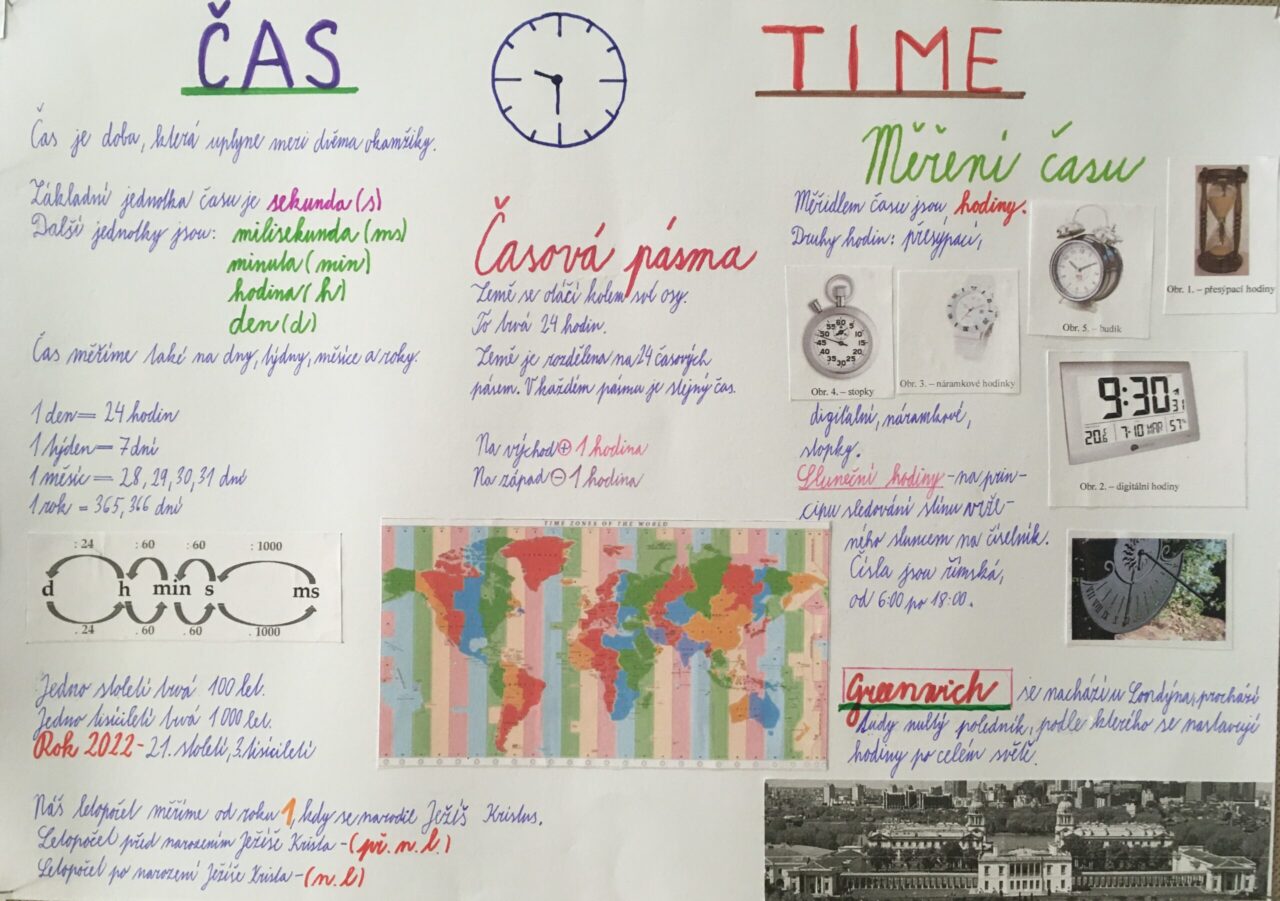 ČAS
Čas je doba, která uplyne mezi dvěma okamžiky.
Základní jednotka času je sekunda (s)
Další jednotky jsou: milisekunda (ms)
minuta (min)
hodina (h)
den (d)
Čas měříme také na dny, týdny, měsíce a roky.
1 den = 24 hodin
1 týden = 7 dní
1 měsíc = 28, 29, 30, 31 dní
1 rok = 365, 366 dní
: 24 : 60 : 60 : 1000
d h min s ms
. 24 . 60 . 60 . 1000
Jedno století trvá 100 let.
Jedno tisíciletí trvá 1000 let.
Rok 2022 - 21. století, 3. tisíciletí
Náš letopočet měříme od roku 1, kdy se narodil Ježíš Kristus.
Letopočet před narozením Ježíše Krista - (př. n. l.)
Letopočet po narození Ježíše Krista - (n. l)
Časová pásma
Země se otáčí kolem své osy.
To trvá 24 hodin.
Země je rozdělena na 24 časových
pásem. V každém pásmu je stejný čas.
Na východ + 1 hodina
Na západ - 1 hodina
TIME ZONES OF THE WORLD
TIME
Měření času
Měřidlem času jsou hodiny.
Druhy hodin: přesýpací,
Obr. 1. – přesýpací hodiny
Obr. 5. – budík
60 5 10 15 20 25 30 35 40 45 50 55
Obr. 4. – stopky
Obr. 3. – náramkové hodinky
digitální, náramkové,
stopky.
9:30 31
20.6 7-10 MAR 57%
Obr. 2. – digitální hodiny
Sluneční hodiny - na prin-
cipu sledování stínu vrže-
ného sluncem na číselník.
Čísla jsou římská,
od 6:00 po 18:00.
Greenwich se nachází u Londýna, prochází
tudy nultý poledník, podle kterého se nastavují
hodiny po celém světě.